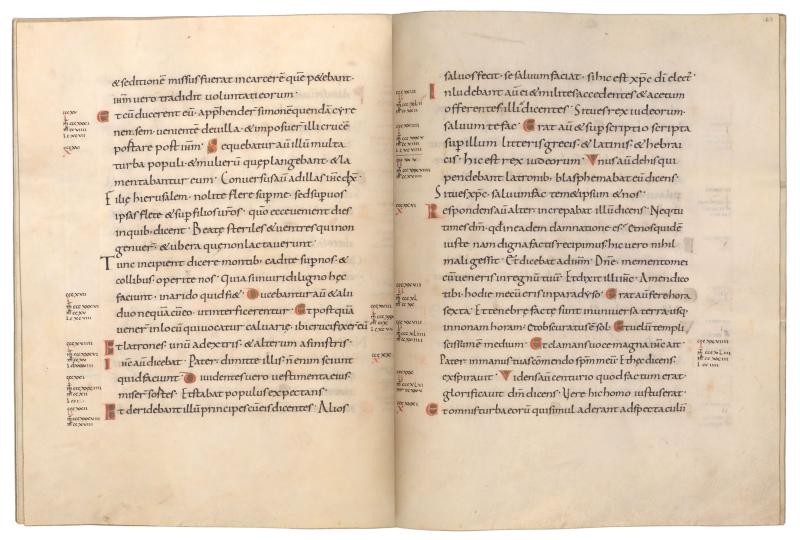 & seditionē missus fuerat in carcerē quē p&ebant·
ihm̄ vero tradidit voluntati eorum·
Et cū ducerent eū· app̄hender simonē quendā cyre
nensem· venientē de villa· & imposuer illi crucē
portare post ihm̄· Sequebatur aū illum multa
turba populi· & mulierū quae plangebant· & la
mentabantur eum· Conversus aū ad illas ihc̄ dx̄·
Filie hierusalem· nolite flere sup me· sed sup vos
ipsas flete & sup filios vr̄os· quō ecce venient dies
in quib· dicent· Beatę steriles & ventres qui non
genuer̄· & ubera quę non lactaverunt·
Tunc incipient dicere montib· cadite sup nos· &
collibus· operite nos· Quia si in viridi ligno hęc
faciunt· in arido quid fi&· Ducebantur aū & alii
duo nequā cū eo· ut interficerentur· Et postquā
vener̄ in locū qui vocatur calvarię· ibi crucifixer̄ eū
Et latrones· unū a dextris· & alterum a sinistris·
Ihc̄ aū dicebat· Pater· dimitte illis· n̄ enim sciunt
quid faciunt· Dividentes vero vestimenta eius·
miser̄ sortes· Et stabat populus expectans·
Et deridebant illū principes cū eis dicentes· Alios
salvos fecit· se salvum faciat· si hic est xp̄c dī elect'·
Inludebant aū ei & milites accedentes & acetum
offerentes illi dicentes· Si tu es rex iudeorum·
salvum te fac· Erat aū & sup scriptio scripta
sup illum litteris grecis· & latinis· & hebrai
cis· hic est rex iudeorum· Unus aū de his qui
pendebant latronib· blasphemabat eū dicens·
Si tu es xp̄c· salvum fac tem&ipsum & nos·
Respondens aū alter increpabat illū dicens· Neq· tu
times dm̄· qd̄ in eadem damnatione es· et nos quidē
iuste nam digna factis recipimus· hic vero nihil
mali gessit· Et dicebat ad ihm̄· Dn̄e· memento mei
cū veneris in regnū tuū· Et dixit illi ihc̄· Amen dico
tibi· hodie mecū eris in paradyso· Erat aū fere hora
sexta· Et tenebrę factę sunt in universa terra usq·
in nonam horam· et obscuratus ē sol· Et velū templi
scissum ē medium· Et clamans voce magna ihc̄ ait·
Pater· in manus tuas comendo spm̄ meū· Et hęc dicens·
expiravit· Videns aū centurio quod factum erat·
glorificavit dm̄ dicens· Vere hic homo iustus erat·
Et omnis turba eorū qui simul aderant ad spectaculū